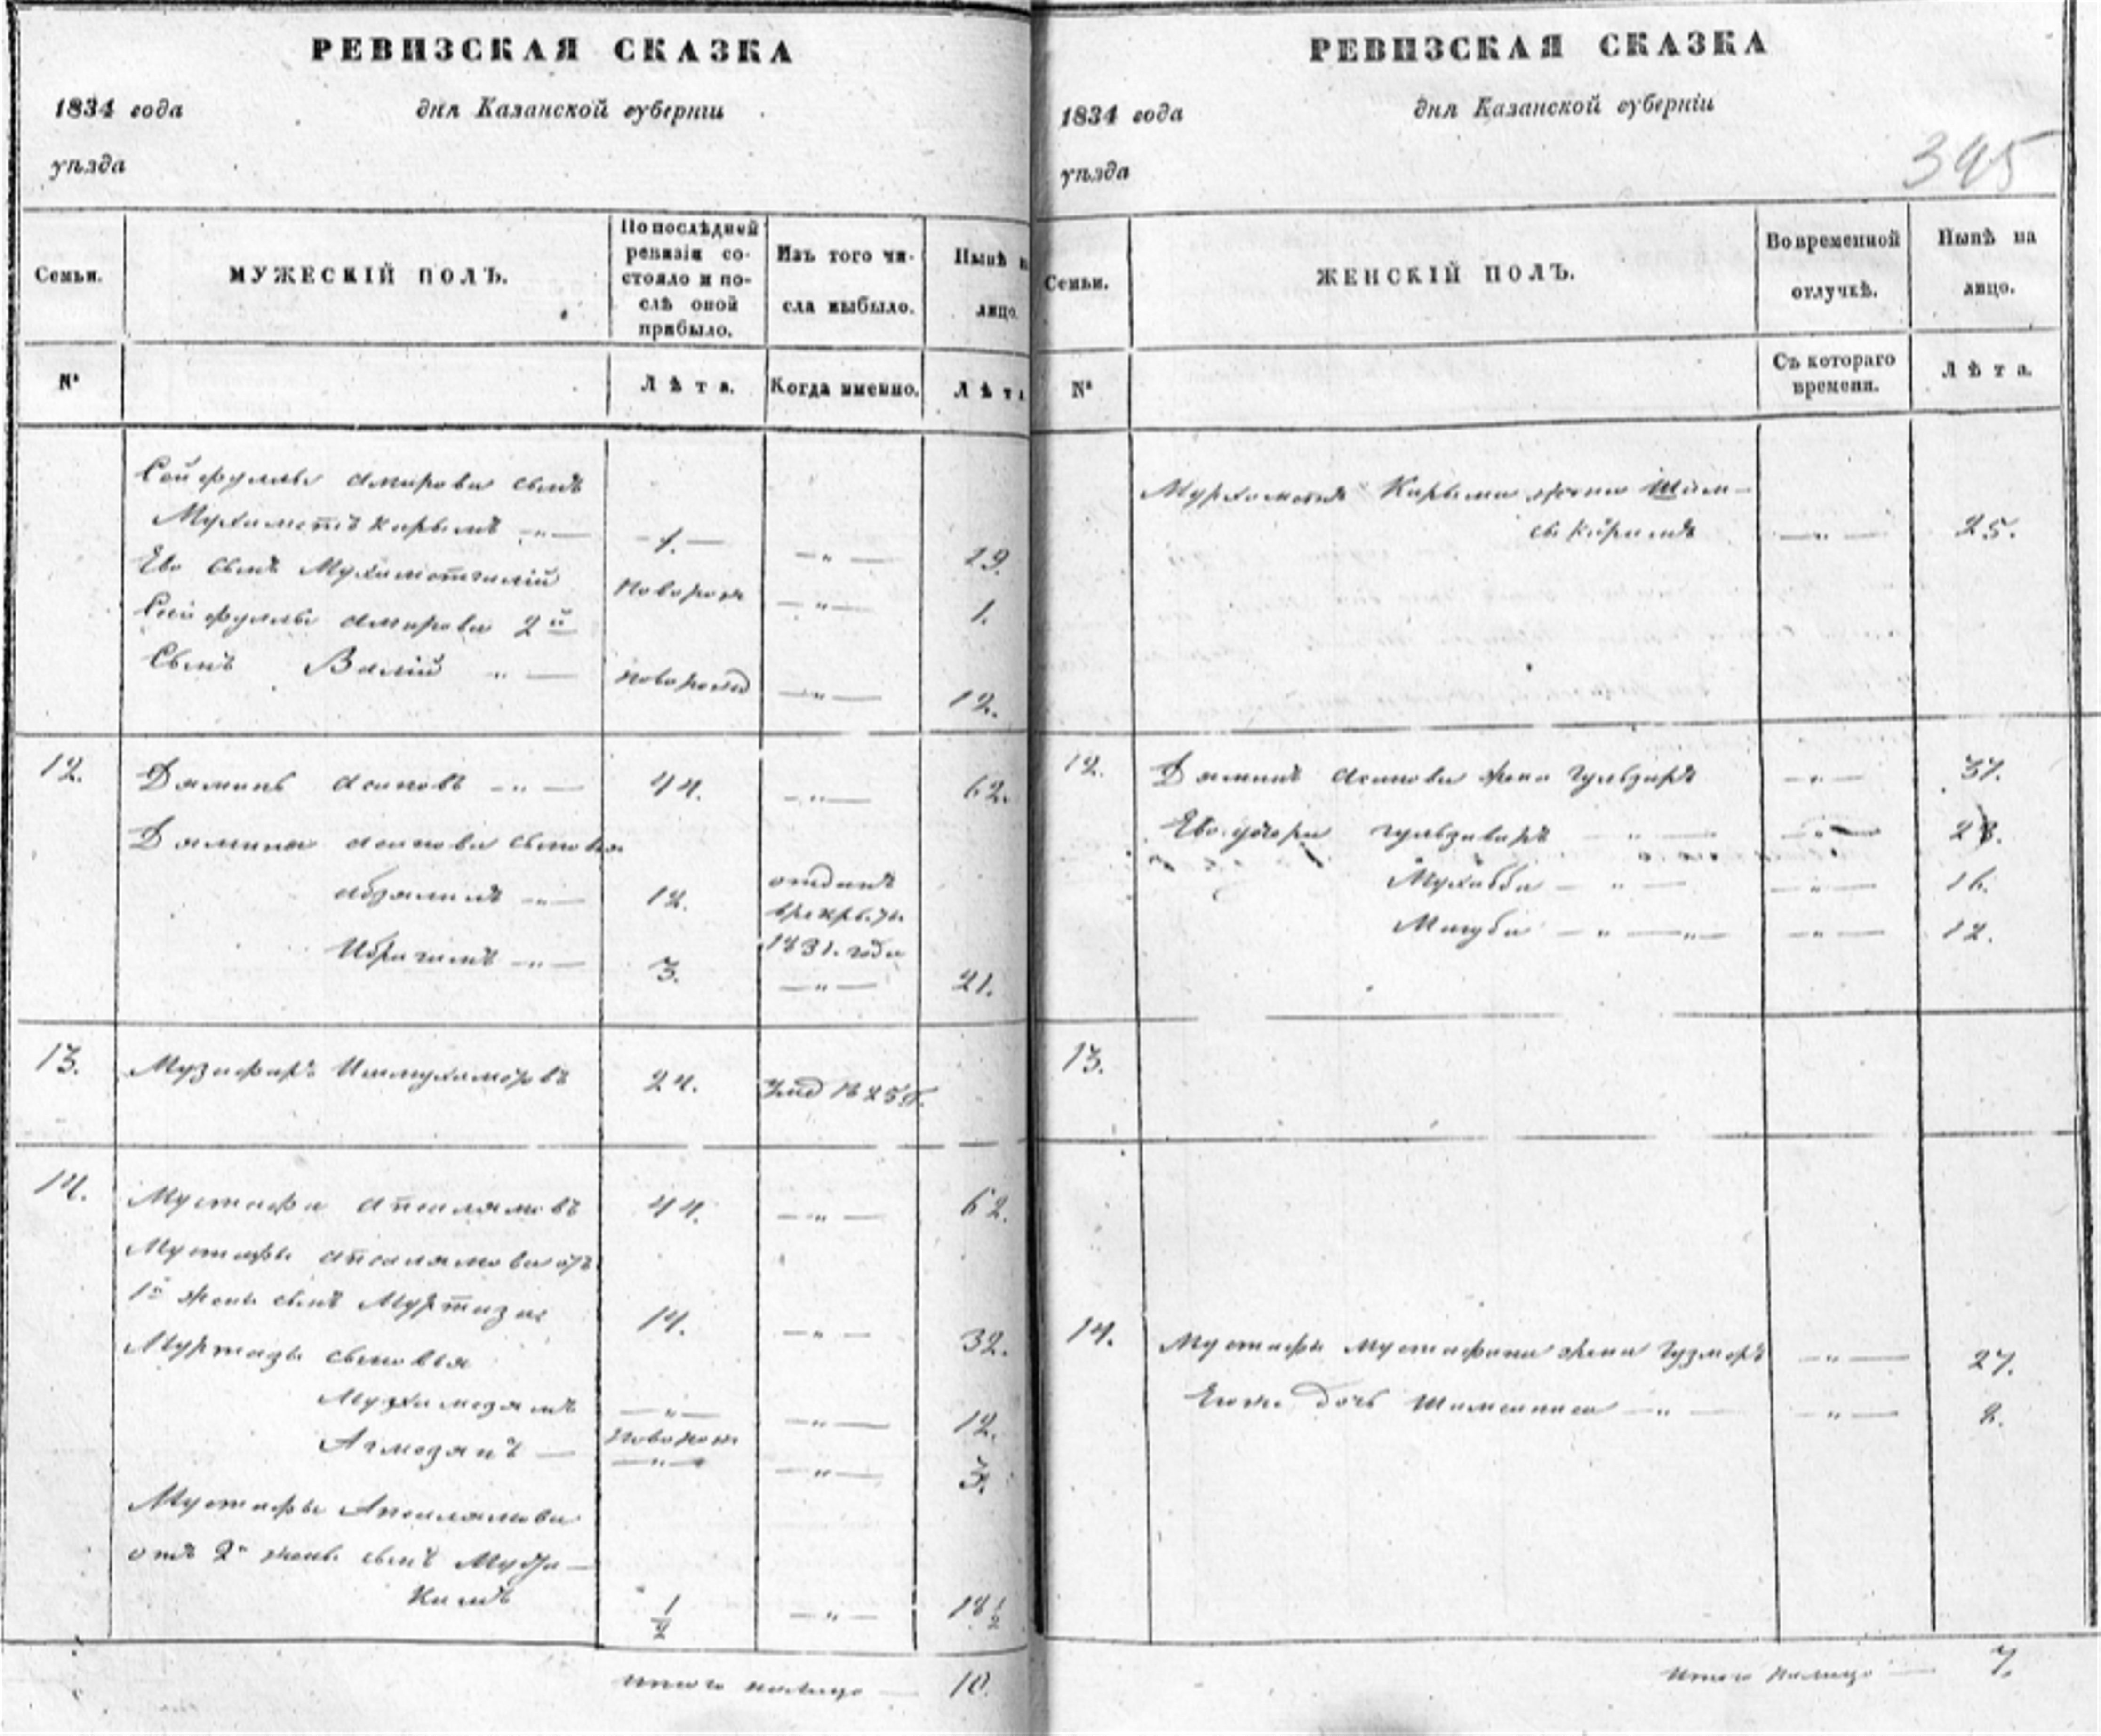 РЕВИЗСКАЯ СКАЗКА
1834 года дня Казанской губерніи
уѣзда
Семьи.
МУЖЕСКІЙ ПОЛЪ.
По послѣдней ревизіи состояло и послѣ оной прибыло.
Изъ того числа выбыло.
Нынѣ на лицо.
№
Лѣта.
Когда именно.
Лѣта
Сейфуллы Амирова сынъ
Мухаметъ Карымъ —„— 1. —„— 19.
Ево сынъ новорож —„— 1.
Сейфуллы Амирова 2й
Сынъ Валій „— новорожд —„— 12.
12. Дяминъ Асановъ —„— 44. —„— 62.
Дямина Асанова сыновья
Абзялилъ —„— 12. отданъ
в рекруты
1831. года
Ибрагимъ —„— 3. —„— 21.
13. Музафаръ Ишмухаметовъ 24. умед 1825г.
14. Мустафа Апсалямовъ 44. —„— 62.
Мустафы Апсалямова отъ
1й жены сынъ Муртаза 14. —„— 32.
Муртазы сыновья
Мухамедзямъ —„— —„— 12.
Ахмедзянъ — новорож —„— —„— 3.
Мустафы Апсалямова
отъ 2й жены сынъ
1/2 —„— 18 1/2
итого налицо — 10.
РЕВИЗСКАЯ СКАЗКА
1834 года дня Казанской губерніи
уѣзда
395
Семьи.
ЖЕНСКІЙ ПОЛЪ.
Во временной отлучкѣ.
Нынѣ на лицо.
№
Съ котораго времени.
Лѣта.
Мухаметъ Карыма жена Шам-
—„— 25.
12. Дяминъ Асанова жена Гульзаръ —„— 37.
Ево дочери —„—
—„— 16.
Магуба —„— —„— 12.
13.
14. Мустафы Мустафина жена —„— 27.
дочь —„— —„— 2.
итого налицо — 7.